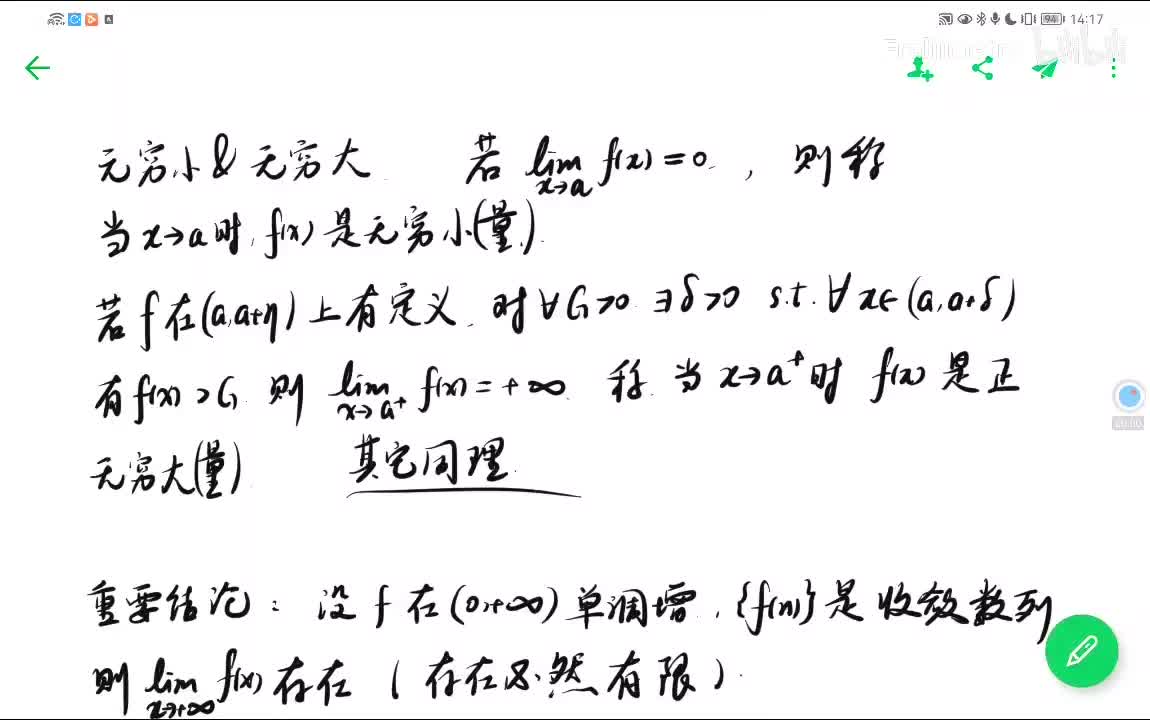 94 14:17
bilibili
无穷小&无穷大 若 lim_{x→a} f(x)=0，则称
当x→a时, f(x)是无穷小(量).
若f在(a,a+η)上有定义. 对∀G>0 ∃δ>0 s.t. ∀x∈(a,a+δ)
有f(x)>G 则 lim_{x→a⁺} f(x)=+∞. 称 当x→a⁺时 f(x)是正
无穷大(量) 其它同理.
重要结论：设f在(0,+∞)单调增, {f(n)}是收敛数列
则 lim_{x→+∞} f(x)存在 (存在必然有限).